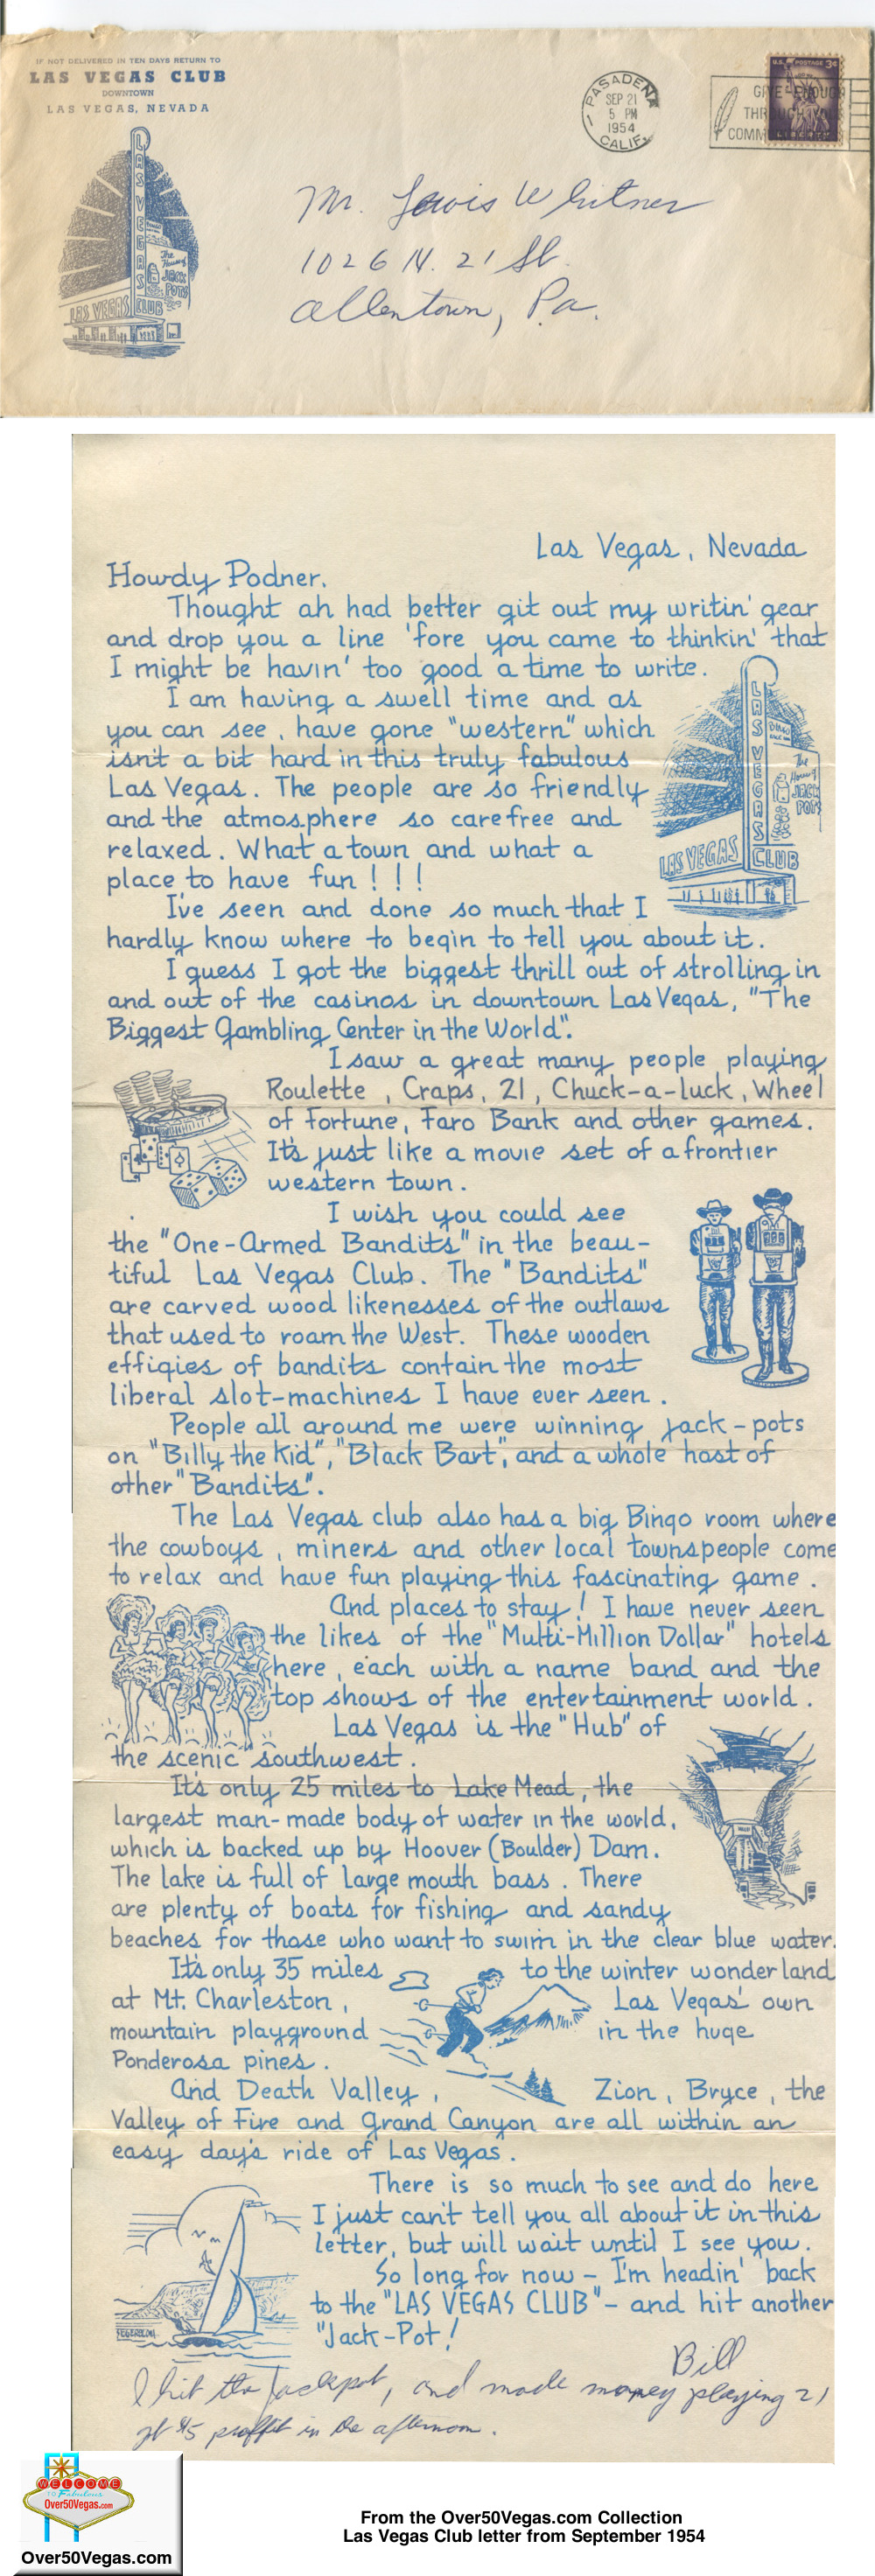 IF NOT DELIVERED IN TEN DAYS RETURN TO
LAS VEGAS CLUB
DOWNTOWN
LAS VEGAS, NEVADA
LAS VEGAS
The House of JACK POTS
LAS VEGAS CLUB
PASADENA
SEP 21
5 PM
1954
CALIF.
U.S. POSTAGE 3¢
GIVE ENOUGH
THROUGH YOUR
COMM
LIBERTY
Mr. Lewis Whitner
1026 N. 21 St.
Allentown, Pa.
Las Vegas, Nevada
Howdy Podner.
Thought ah had better git out my writin' gear
and drop you a line 'fore you came to thinkin' that
I might be havin' too good a time to write.
I am having a swell time and as
you can see, have gone "western" which
isn't a bit hard in this truly fabulous
Las Vegas. The people are so friendly
and the atmosphere so carefree and
relaxed. What a town and what a
place to have fun!!!
LAS VEGAS
BINGO
The House of JACK POTS
LAS VEGAS CLUB
I've seen and done so much that I
hardly know where to begin to tell you about it.
I guess I got the biggest thrill out of strolling in
and out of the casinos in downtown Las Vegas, "The
Biggest Gambling Center in the World".
I saw a great many people playing
Roulette, Craps, 21, Chuck-a-luck, Wheel
of Fortune, Faro Bank and other games.
It's just like a movie set of a frontier
western town.
I wish you could see
the "One-Armed Bandits" in the beau-
tiful Las Vegas Club. The "Bandits"
are carved wood likenesses of the outlaws
that used to roam the West. These wooden
effigies of bandits contain the most
liberal slot-machines I have ever seen.
People all around me were winning jack-pots
on "Billy the Kid", "Black Bart", and a whole host of
other "Bandits".
The Las Vegas club also has a big Bingo room where
the cowboys, miners and other local townspeople come
to relax and have fun playing this fascinating game.
And places to stay! I have never seen
the likes of the "Multi-Million Dollar" hotels
here, each with a name band and the
top shows of the entertainment world.
Las Vegas is the "Hub" of
the scenic southwest.
It's only 25 miles to Lake Mead, the
largest man-made body of water in the world,
which is backed up by Hoover (Boulder) Dam.
The lake is full of large mouth bass. There
are plenty of boats for fishing and sandy
beaches for those who want to swim in the clear blue water.
It's only 35 miles to the winter wonderland
at Mt. Charleston, Las Vegas' own
mountain playground in the huge
Ponderosa pines.
And Death Valley, Zion, Bryce, the
Valley of Fire and Grand Canyon are all within an
easy day's ride of Las Vegas.
There is so much to see and do here
I just can't tell you all about it in this
letter, but will wait until I see you.
So long for now – I'm headin' back
to the "LAS VEGAS CLUB" – and hit another
"Jack-Pot!
Bill
I hit the Jackpot, and made money playing 21
$5 proffit in the afternoon.
WELCOME
TO Fabulous
Over50Vegas.com
Over50Vegas.com
From the Over50Vegas.com Collection
Las Vegas Club letter from September 1954